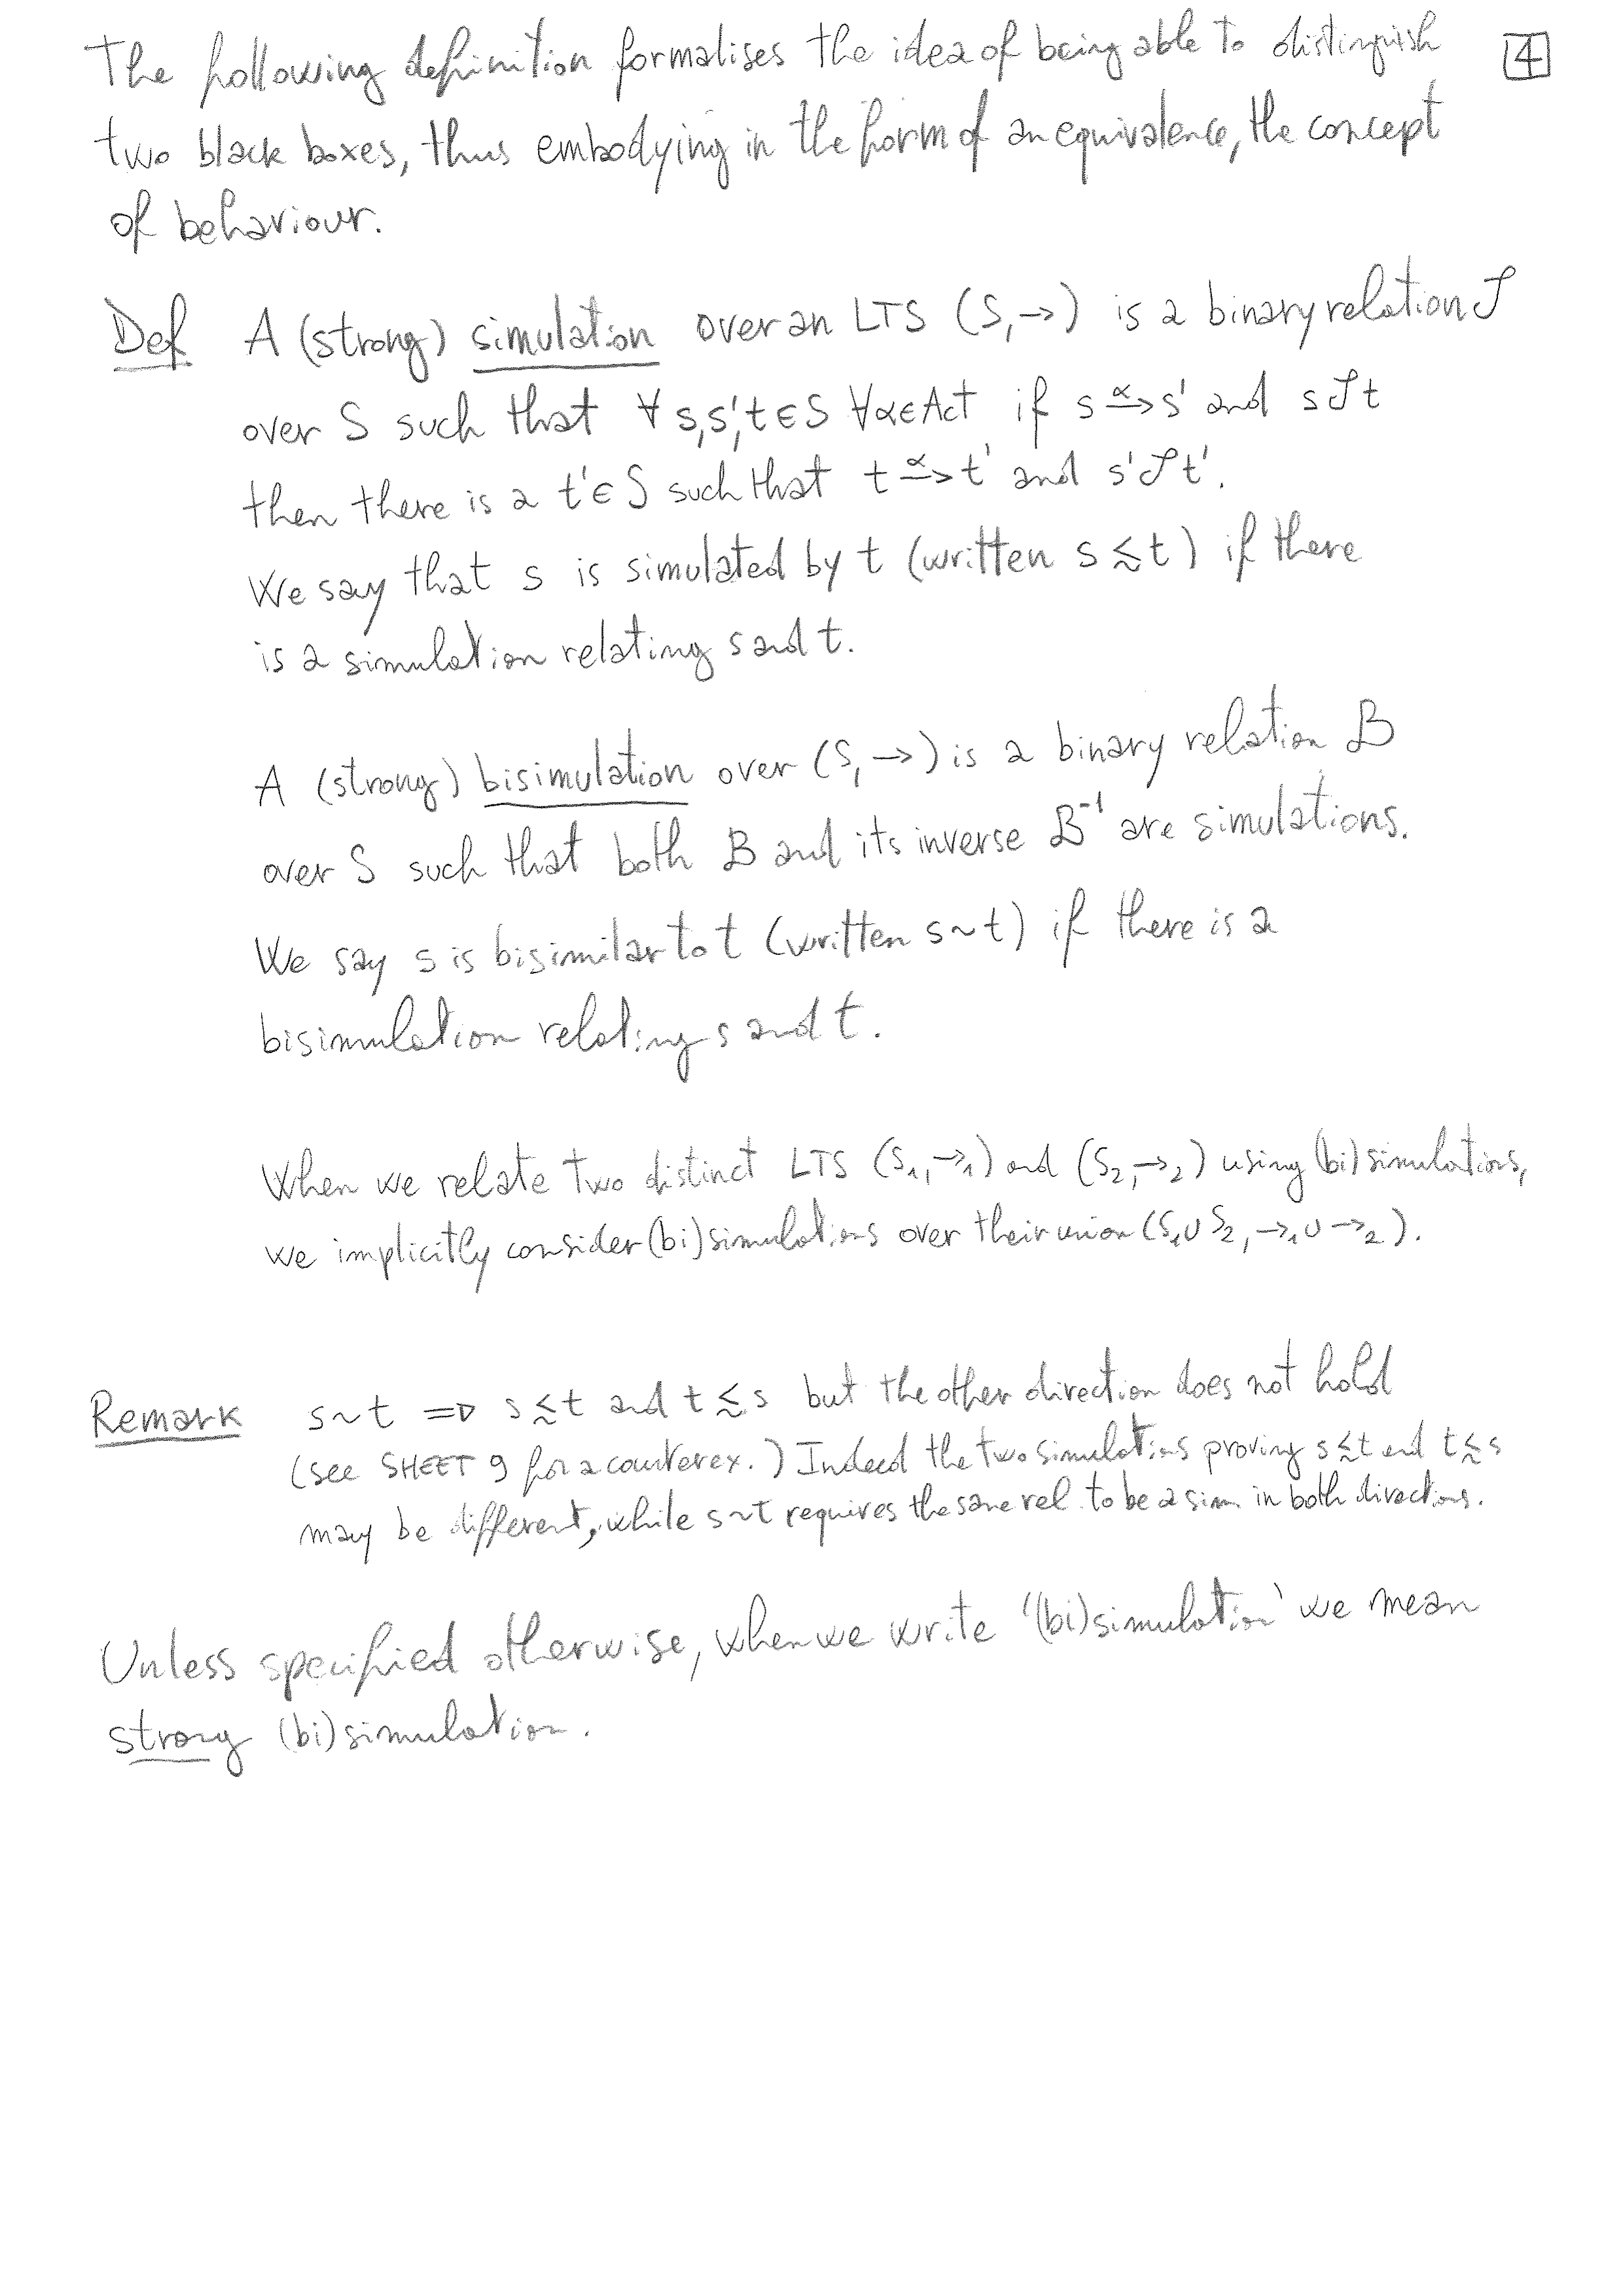 The following definition formalises the idea of being able to distinguish [4]
two black boxes, thus embodying in the form of an equivalence, the concept
of behaviour.
Def A (strong) simulation over an LTS (S, →) is a binary relation 𝒮
over S such that ∀ s,s',t ∈ S ∀α∈Act if s –α→ s' and s 𝒮 t
then there is a t' ∈ S such that t –α→ t' and s' 𝒮 t'.
We say that s is simulated by t (written s ≲ t) if there
is a simulation relating s and t.
A (strong) bisimulation over (S, →) is a binary relation ℬ
over S such that both ℬ and its inverse ℬ⁻¹ are simulations.
We say s is bisimilar to t (written s ~ t) if there is a
bisimulation relating s and t.
When we relate two distinct LTS (S₁, →₁) and (S₂, →₂) using (bi)simulations,
we implicitly consider (bi)simulations over their union (S₁ ∪ S₂, →₁ ∪ →₂).
Remark s ~ t ⇒ s ≲ t and t ≲ s but the other direction does not hold
(see SHEET 9 for a counterex.) Indeed the two simulations proving s ≲ t and t ≲ s
may be different, while s ~ t requires the same rel. to be a sim. in both directions.
Unless specified otherwise, when we write '(bi)simulation' we mean
strong (bi)simulation.